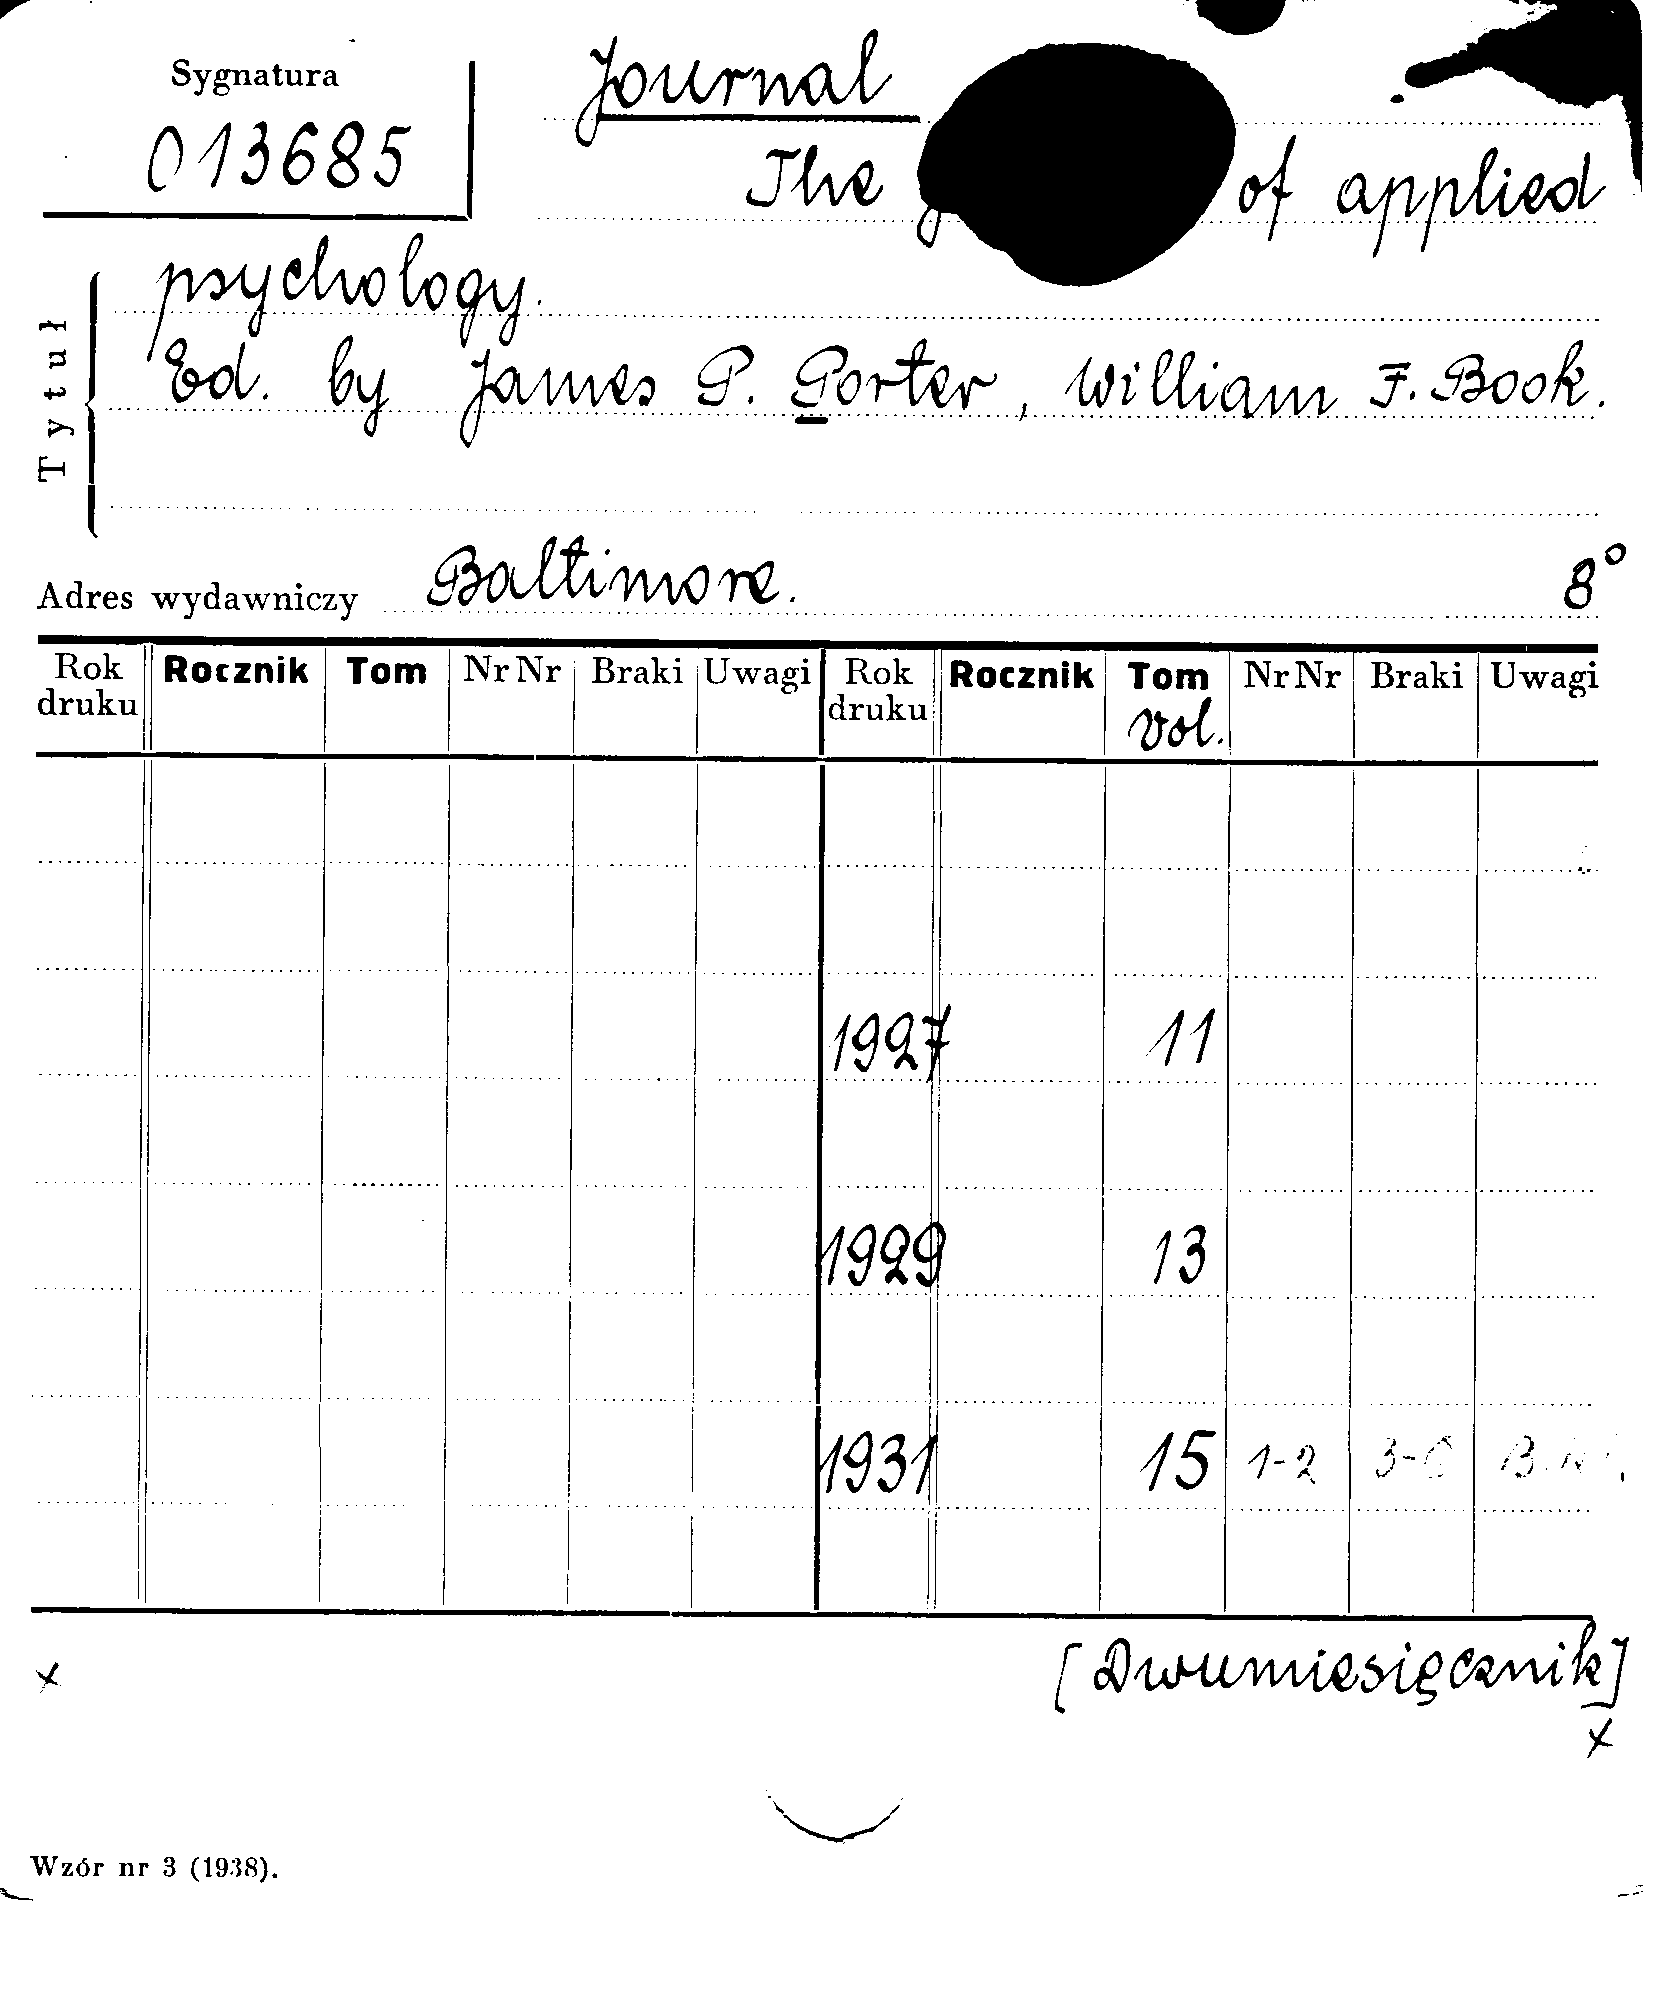 Sygnatura
013685
Journal
The of applied
psychology.
Ed. by James P. Porter, William F. Book.
Tytuł
Adres wydawniczy Baltimore. 8°
Rok druku Rocznik Tom Nr Nr Braki Uwagi Rok druku Rocznik Tom Nr Nr Braki Uwagi
Vol.
1927 11
1929 13
1931 15 1-2
[Dwumiesięcznik]
x
x
Wzór nr 3 (1938).